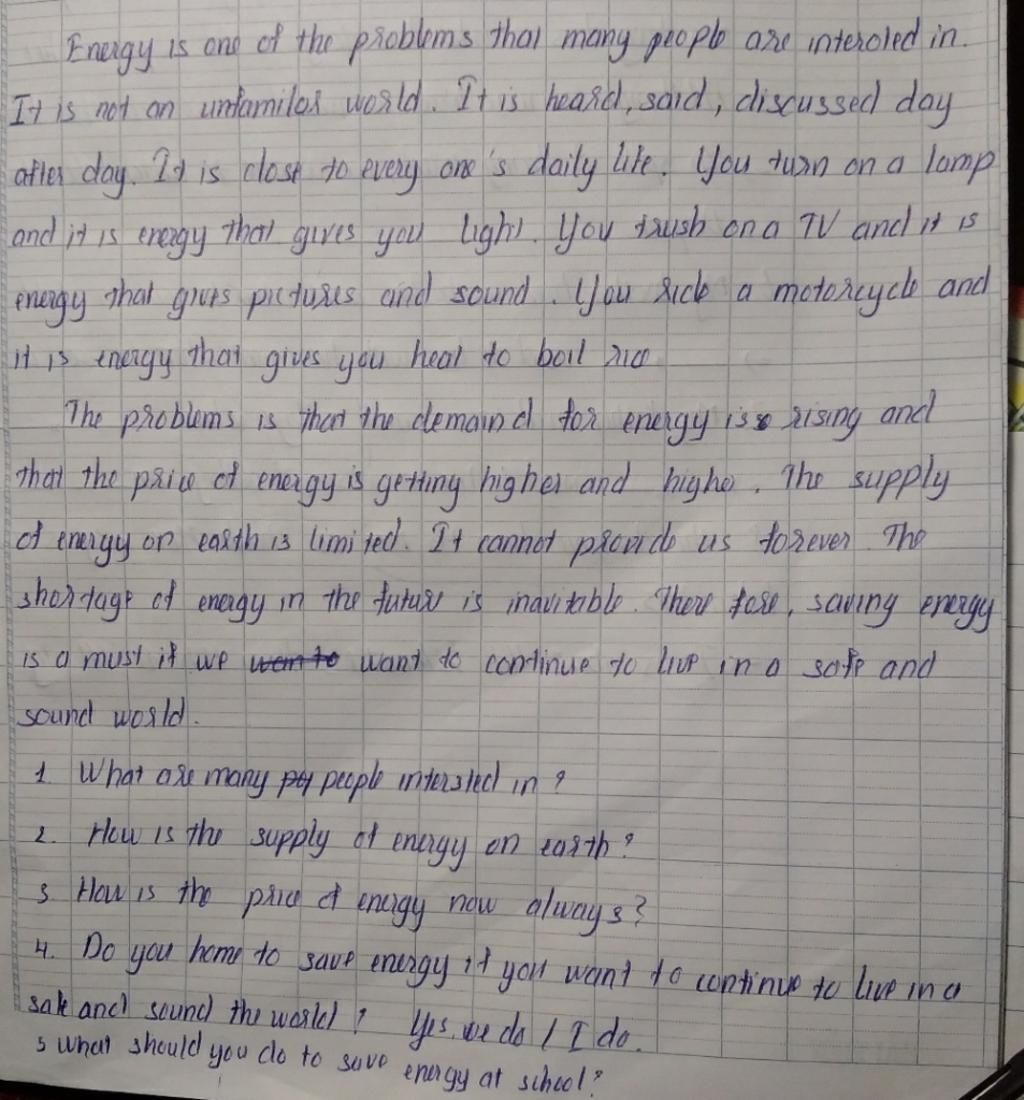 Energy is one of the problems that many people are interoled in.
It is not an unfamilar world. It is heard, said, discussed day
after day. It is close to every one's daily life. You turn on a lamp
and it is energy that gives you light. You trush on a TV and it is
energy that gives pictures and sound. You ride a motorcycle and
it is energy that gives you heat to boil rice
The problems is that the demaind for energy is rising and
that the price of energy is getting higher and highe. The supply
of energy on earth is limited. It cannot provide us forever. The
shortage of energy in the future is inavitable. There fore, saving energy
is a must if we want to continue to live in a safe and
sound world.
1 What are many people intersted in ?
2. How is the supply of energy on earth?
3 How is the price of energy now always?
4. Do you home to save energy if you want to continue to live in a
safe and sound the world ? Yes, we do / I do.
5 what should you do to save energy at school?